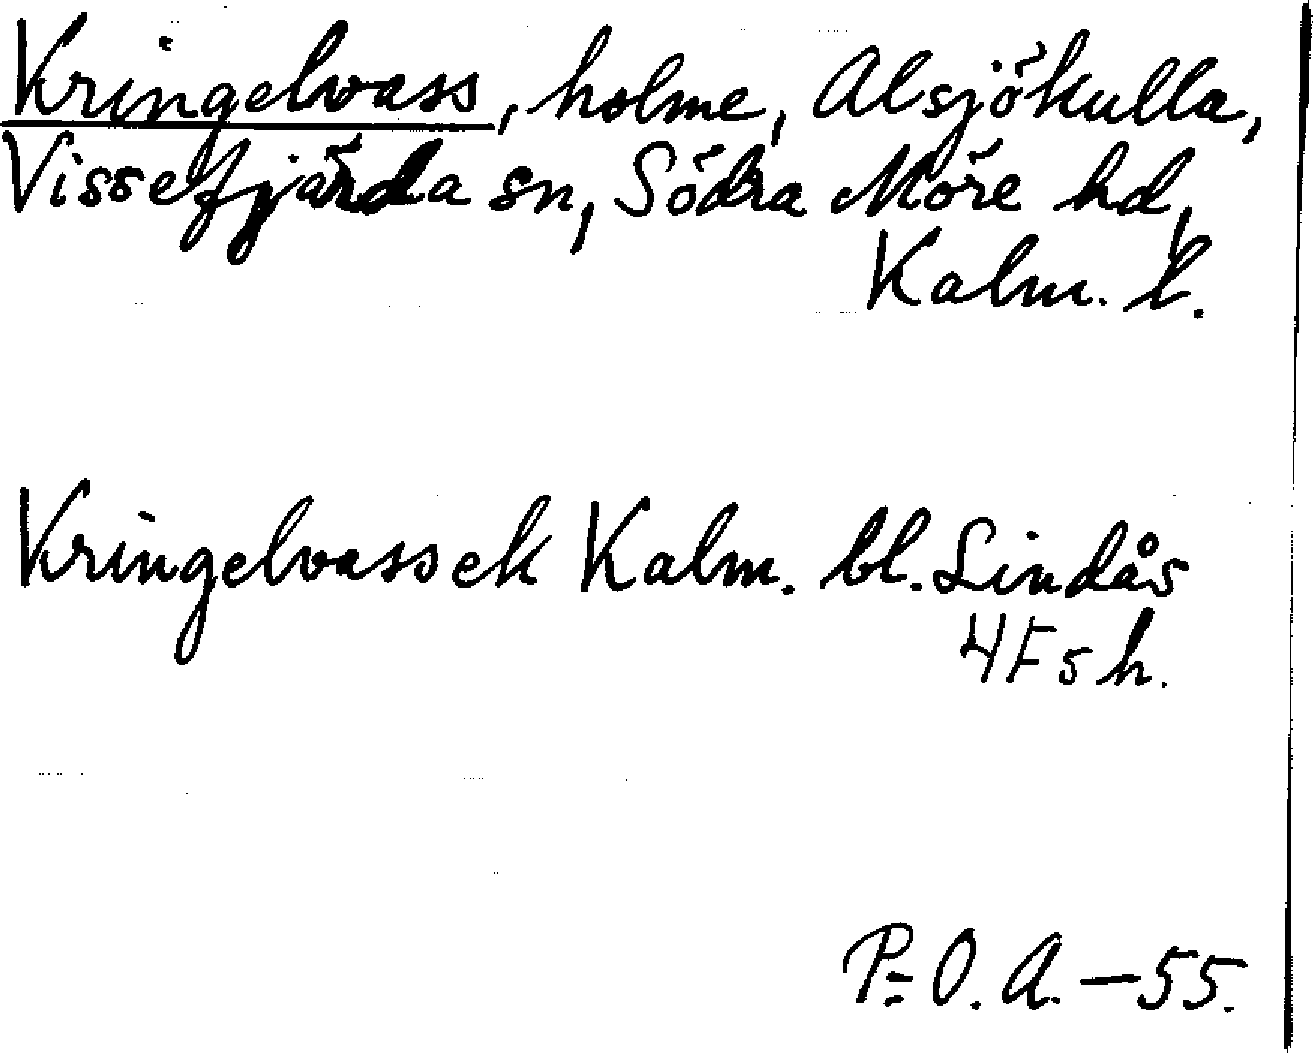 Kringelvass, holme, Alsjökulla,
Vissefjärda sn, Södra Möre hd,
Kalm. l.
Kringelvassek Kalm. bl. Lindås
4F5h.
P-O.A.-55.